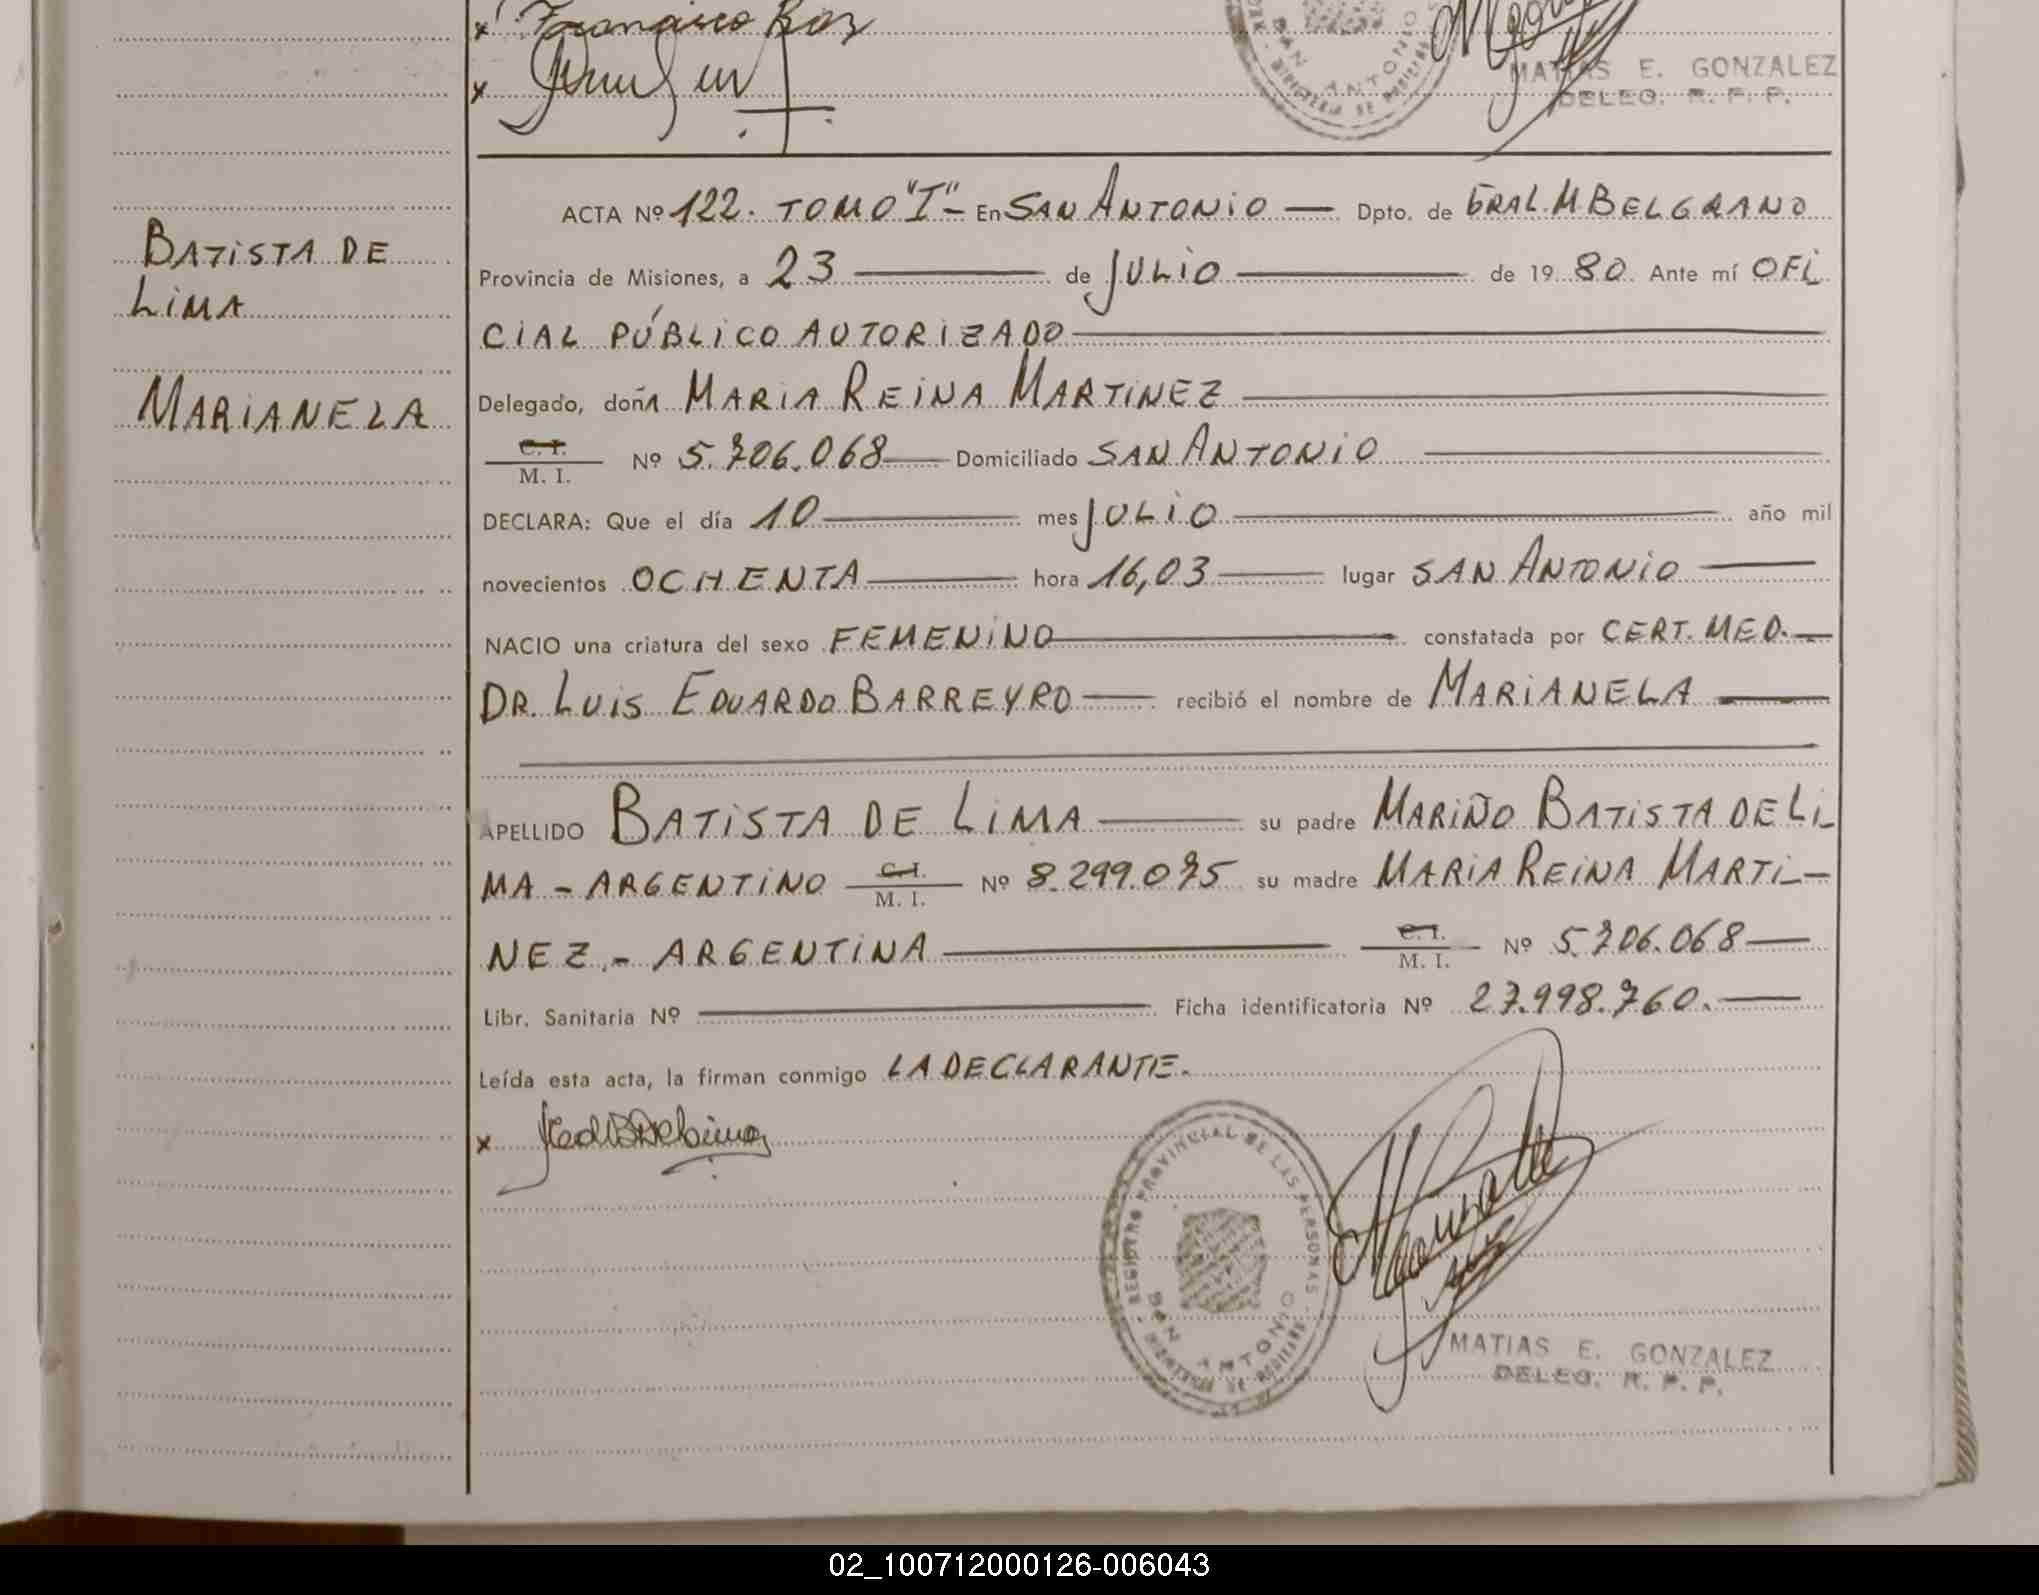 x Francisco
x
MATIAS E. GONZALEZ
DELEG. R. P. P.
BATISTA DE
LIMA
MARIANELA
ACTA Nº 122. TOMO "I" - En SAN ANTONIO — Dpto. de GRAL. M BELGRANO
Provincia de Misiones, a 23 — de JULIO — de 19 80 Ante mí OFI
CIAL PÚBLICO AUTORIZADO —
Delegado, doñA MARIA REINA MARTINEZ —
C. I.
M. I. Nº 5.706.068 — Domiciliado SAN ANTONIO —
DECLARA: Que el día 10 — mes JULIO — año mil
novecientos OCHENTA — hora 16,03 — lugar SAN ANTONIO —
NACIO una criatura del sexo FEMENINO — constatada por CERT. MED. —
DR. LUIS EDUARDO BARREYRO — recibió el nombre de MARIANELA —
APELLIDO BATISTA DE LIMA — su padre MARIÑO BATISTA DE LI
MA - ARGENTINO C. I. M. I. Nº 8.299.075 su madre MARIA REINA MARTI-
NEZ.- ARGENTINA — C. I. M. I. Nº 5.706.068 —
Libr. Sanitaria Nº — Ficha identificatoria Nº 27.998.760. —
Leída esta acta, la firman conmigo LA DECLARANTE.
x
REGISTRO PROVINCIAL DE LAS PERSONAS
SAN ANTONIO
MATIAS E. GONZALEZ
DELEG. R. P. P.
02_100712000126-006043